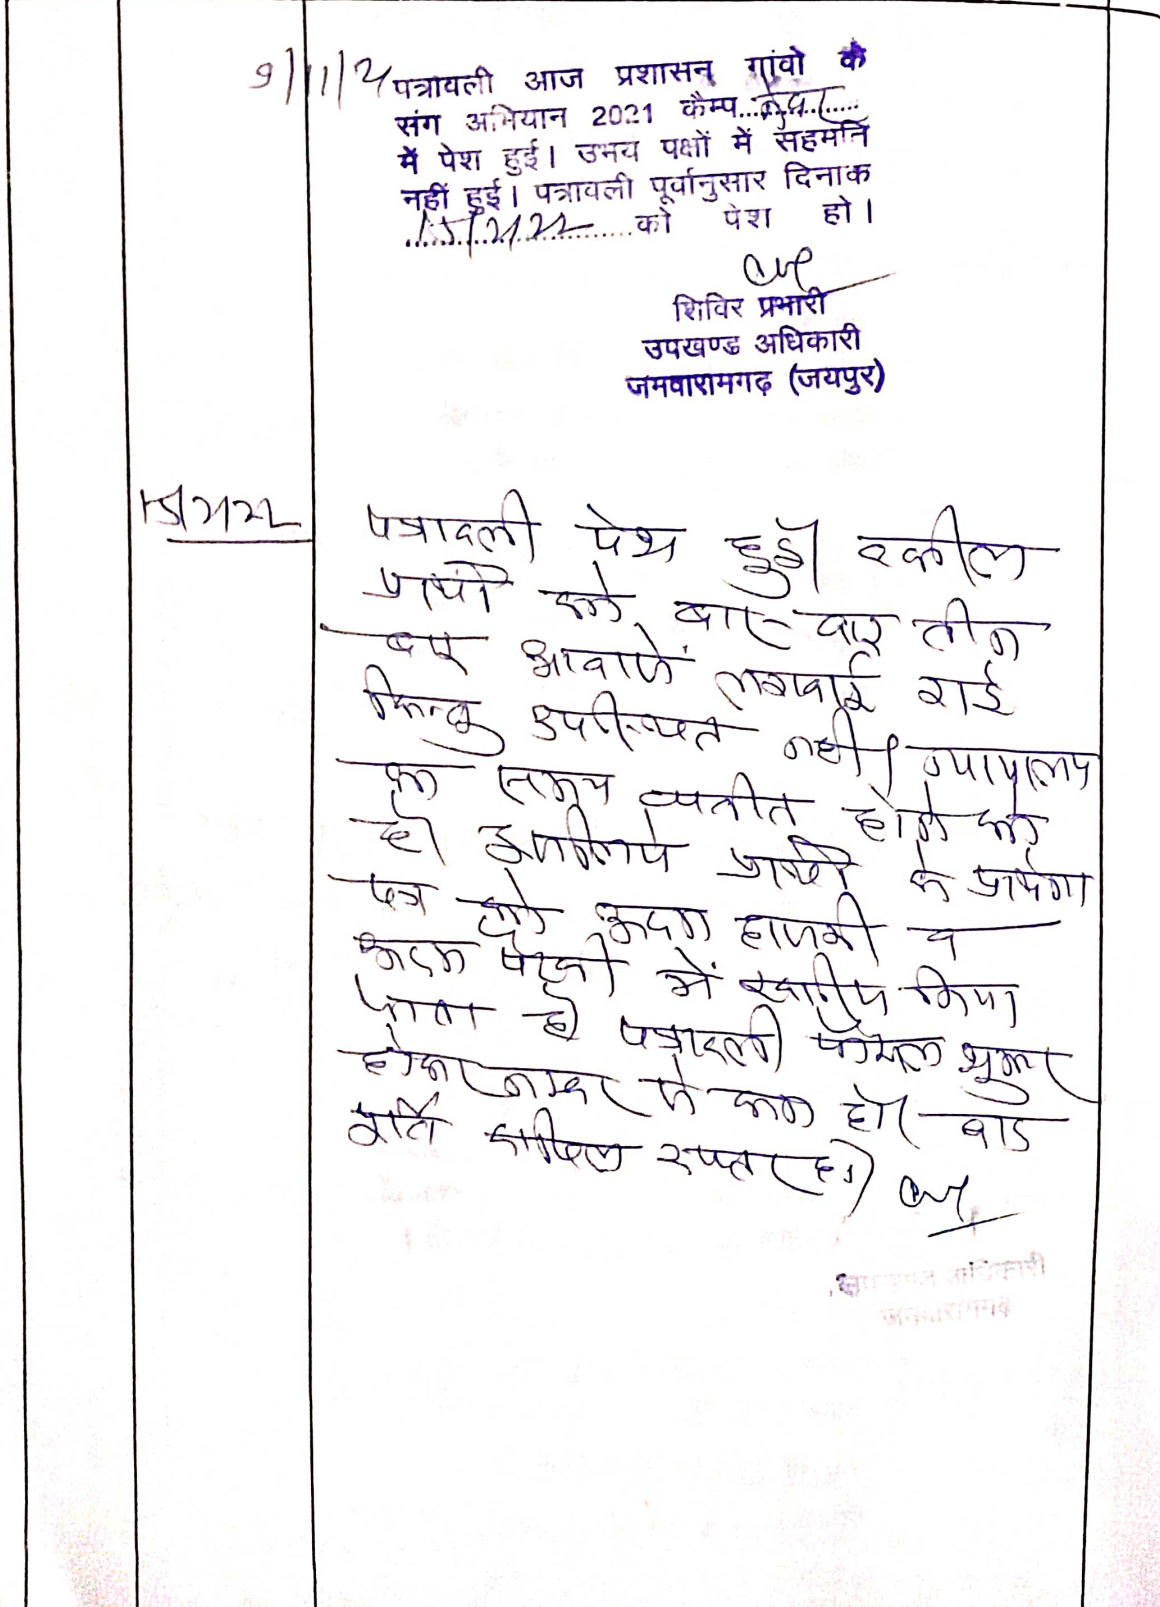 9/11/21 पत्रावली आज प्रशासन गांवो के
संग अभियान 2021 कैम्प
में पेश हुई। उभय पक्षों में सहमति
नहीं हुई। पत्रावली पूर्वानुसार दिनाक
15/2/22 को पेश हो।
शिविर प्रभारी
उपखण्ड अधिकारी
जमवारामगढ़ (जयपुर)
15/2/22
पत्रावली पेश हुई। वकील
प्रार्थी को बार-बार तीन
बार आवाजें लगवाई गई
किन्तु उपस्थित नहीं। न्यायालय
का समय व्यतीत होने को
है। इसलिये प्रार्थी के प्रार्थना
पत्र को अदम हाजरी व
अदम पैरवी में खारीज किया
जाता है। पत्रावली फैसल शुमार
होकर नम्बर से कम हो। बाद
पूर्ति दाखिल दफ्तर हो।
उपखण्ड अधिकारी
जमवारामगढ़